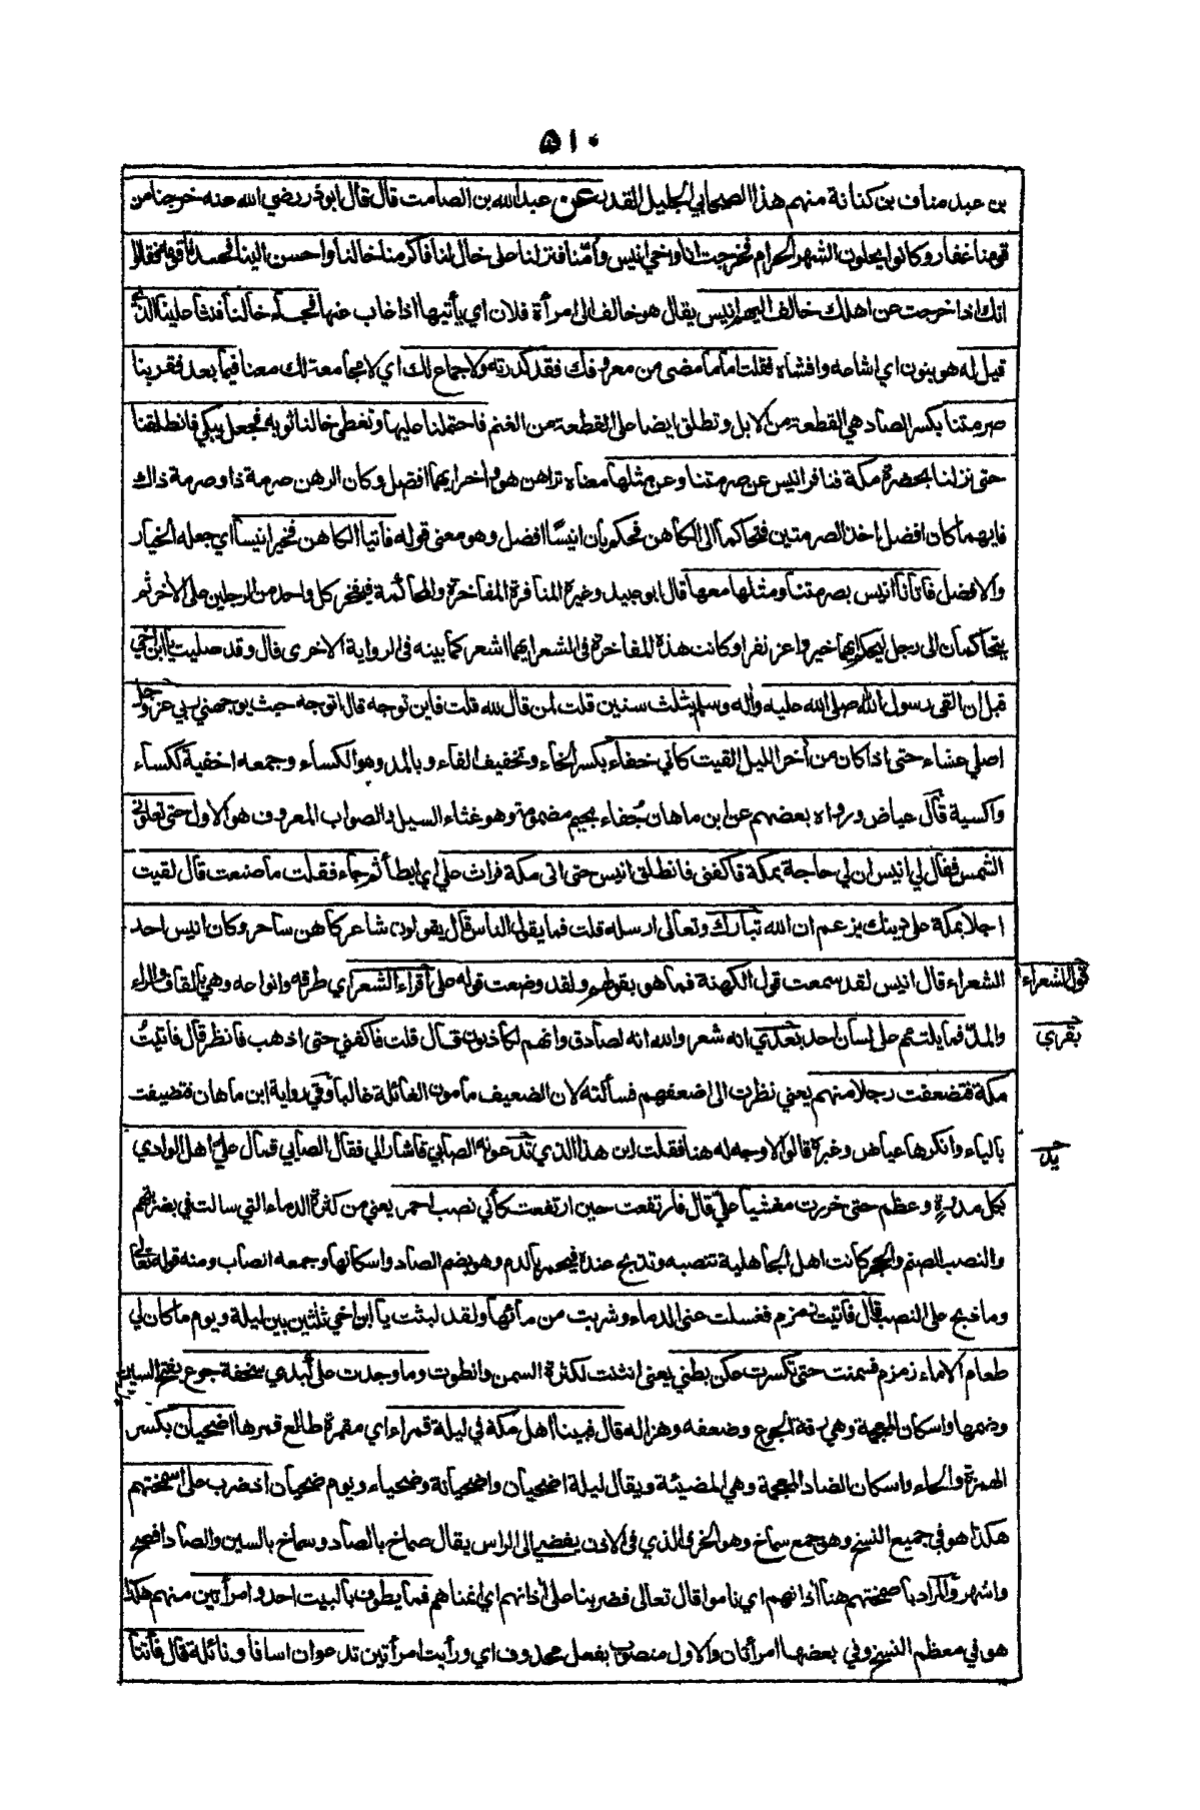 ٥١٠
بن عبد مناف بن كنانة منهم هذا الصحابي الجليل القدر عن عبدالله بن الصامت قال قال ابوذر رضي الله عنه خرجنا من
قومنا غفار وكانوا يحلون الشهر الحرام فخرجت انا واخي انيس وأمّنا فنزلنا على خال لنا فاكرمنا خالنا واحسن الينا فحسدنا قومه فقالوا
انك اذا خرجت عن اهلك خالف اليهم انيس يقال هو خالف الى امرأة فلان اي يأتيها اذا غاب عنها فجاء خالنا فنثا علينا الذي
قيل له هو بنون اي اشاعه وافشاه فقلت اما ما مضى من معروفك فقد كدرته ولا جماع لك اي لا مجامعة لك معنا فيما بعد فقربنا
صرمتنا بكسر الصاد هي القطعة من الابل وتطلق ايضا على القطعة من الغنم فاحتملنا عليها وتغطى خالنا ثوبه فجعل يبكي فانطلقنا
حتى نزلنا بحضرة مكة فنافر انيس عن صرمتنا وعن مثلها معناه تراهن هو واخر ايهما افضل وكان الرهن صرمة ذا وصرمة ذاك
فايهما كان افضل اخذ الصرمتين فتحاكما الى الكاهن فحكم بأن انيسًا افضل وهو معنى قوله فأتيا الكاهن فخير انيسا اي جعله الخيار
والافضل فاتانا انيس بصرمتنا ومثلها معها قال ابو عبيد وغيره المنافرة المفاخرة والمحاكمة فيفخر كل واحد من الرجلين على الآخر ثم
يتحاكمان الى رجل ليحكم ايهما خير واعز نفرا وكانت هذه المفاخرة في الشعر ايهما اشعر كما بينه في الرواية الاخرى قال وقد صليت يا ابن اخي
قبل ان القى رسول الله صلى الله عليه وآله وسلم بثلث سنين قلت لمن قال لله قلت فاين توجه قال اتوجه حيث يوجهني ربي عز وجل
اصلي عشاء حتى اذا كان من آخر الليل القيت كأني خفاء بكسر الخاء وتخفيف الفاء وبالمد وهو الكساء وجمعه اخفية ككساء
واكسية قال عياض ورواه بعضهم عن ابن ماهان جُفاء بجيم مضمومة وهو غثاء السيل والصواب المعروف هو الاول حتى تعلوني
الشمس فقال لي انيس ان لي حاجة بمكة فاكفني فانطلق انيس حتى اتى مكة فراث علي اي ابطأ ثم جاء فقلت ما صنعت قال لقيت
رجلا بمكة على دينك يزعم ان الله تبارك وتعالى ارسله قلت فما يقول الناس قال يقولون شاعر كاهن ساحر وكان انيس احد
الشعراء قال انيس لقد سمعت قول الكهنة فما هو بقولهم ولقد وضعت قوله على اقراء الشعر اي طرقه وانواعه وهي بالقاف والراء
قول الشعراء
والمد فما يلتئم على لسان احد بعدي انه شعر والله انه لصادق وانهم لكاذبون قال قلت فاكفني حتى اذهب فانظر قال فاتيتُ
بقري
مكة فتضعفت رجلا منهم يعني نظرت الى اضعفهم فسألته لان الضعيف مأمون الغائلة غالبا وفي رواية ابن ماهان فتضيفت
بالياء وانكرها عياض وغيره قالوا لا وجه له هنا فقلت اين هذا الذي تدعونه الصابي فاشار الي فقال الصابي قال فمال علي اهل الوادي
بكل مدرة وعظم حتى خررت مغشيا عليّ قال فارتفعت حين ارتفعت كأني نصب احمر يعني من كثرة الدماء التي سالت في بضربهم
والنصب الصنم والحجر كانت اهل الجاهلية تنصبه وتذبح عنده فيحمر بالدم وهو بضم الصاد واسكانها وجمعه انصاب ومنه قوله تعالى
وما ذبح على النصب قال فاتيت زمزم فغسلت عني الدماء وشربت من مائها ولقد لبثت يا ابن اخي ثلثين بين ليلة ويوم ما كان لي
طعام الا ماء زمزم فسمنت حتى تكسرت عكن بطني يعني انثنت لكثرة السمن وانطوت وما وجدت على كبدي سخفة جوع بفتح السين
وضمها واسكان المعجمة وهي رقة الجوع وضعفه وهزاله قال فبينا اهل مكة في ليلة قمراء اي مقمرة طالع قمرها اضحيان بكسر
الهمزة والحاء واسكان الضاد المعجمة وهي المضيئة ويقال ليلة اضحيان واضحيانة وضحياء ويوم ضحيان اذ ضرب على اسمختهم
هكذا هو في جميع النسخ وهو جمع سماخ وهو الخرق الذي في الاذن يفضي الى الراس يقال صماخ بالصاد وسماخ بالسين والصاد افصح
واشهر والمراد باصمختهم هنا آذانهم اي ناموا قال تعالى فضربنا على آذانهم اي اغناهم فما يطوف بالبيت احد وامرأتين منهم هكذا
هو في معظم النسخ وفي بعضها امرأتان والاول منصوب بفعل محذوف اي ورأيت امرأتين تدعوان اسافا ونائلة قال فأتتا